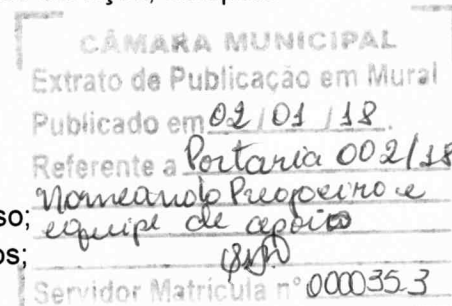 CÂMARA MUNICIPAL
Extrato de Publicação em Mural
Publicado em 02/01/18.
Referente a Portaria 002/18
Nomeando Pregoeiro e
so; equipe de apoio
os;
Servidor Matrícula nº 000035-3